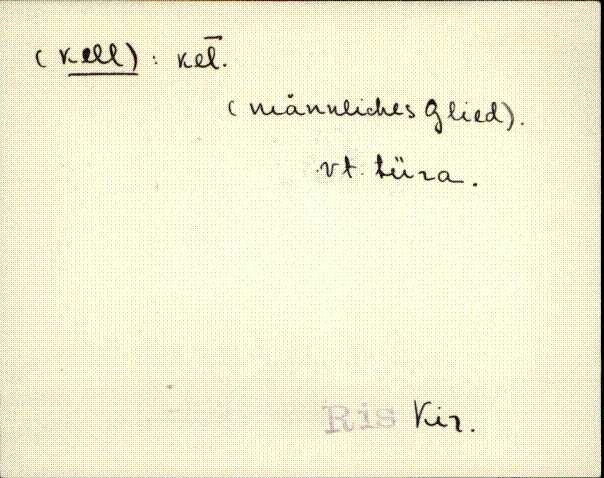 (kell) : kel̄.
(männliches Glied).
vt. türa.
Ris Kir.